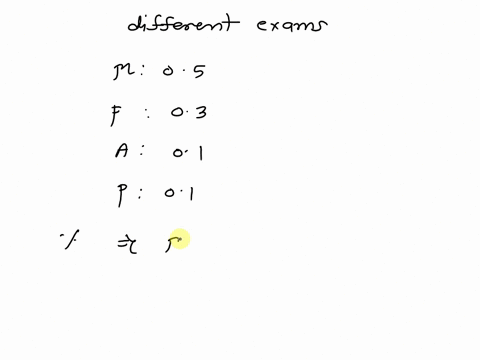 different exams
M: 0.5
F : 0.3
A: 0.1
P: 0.1
% ⇒